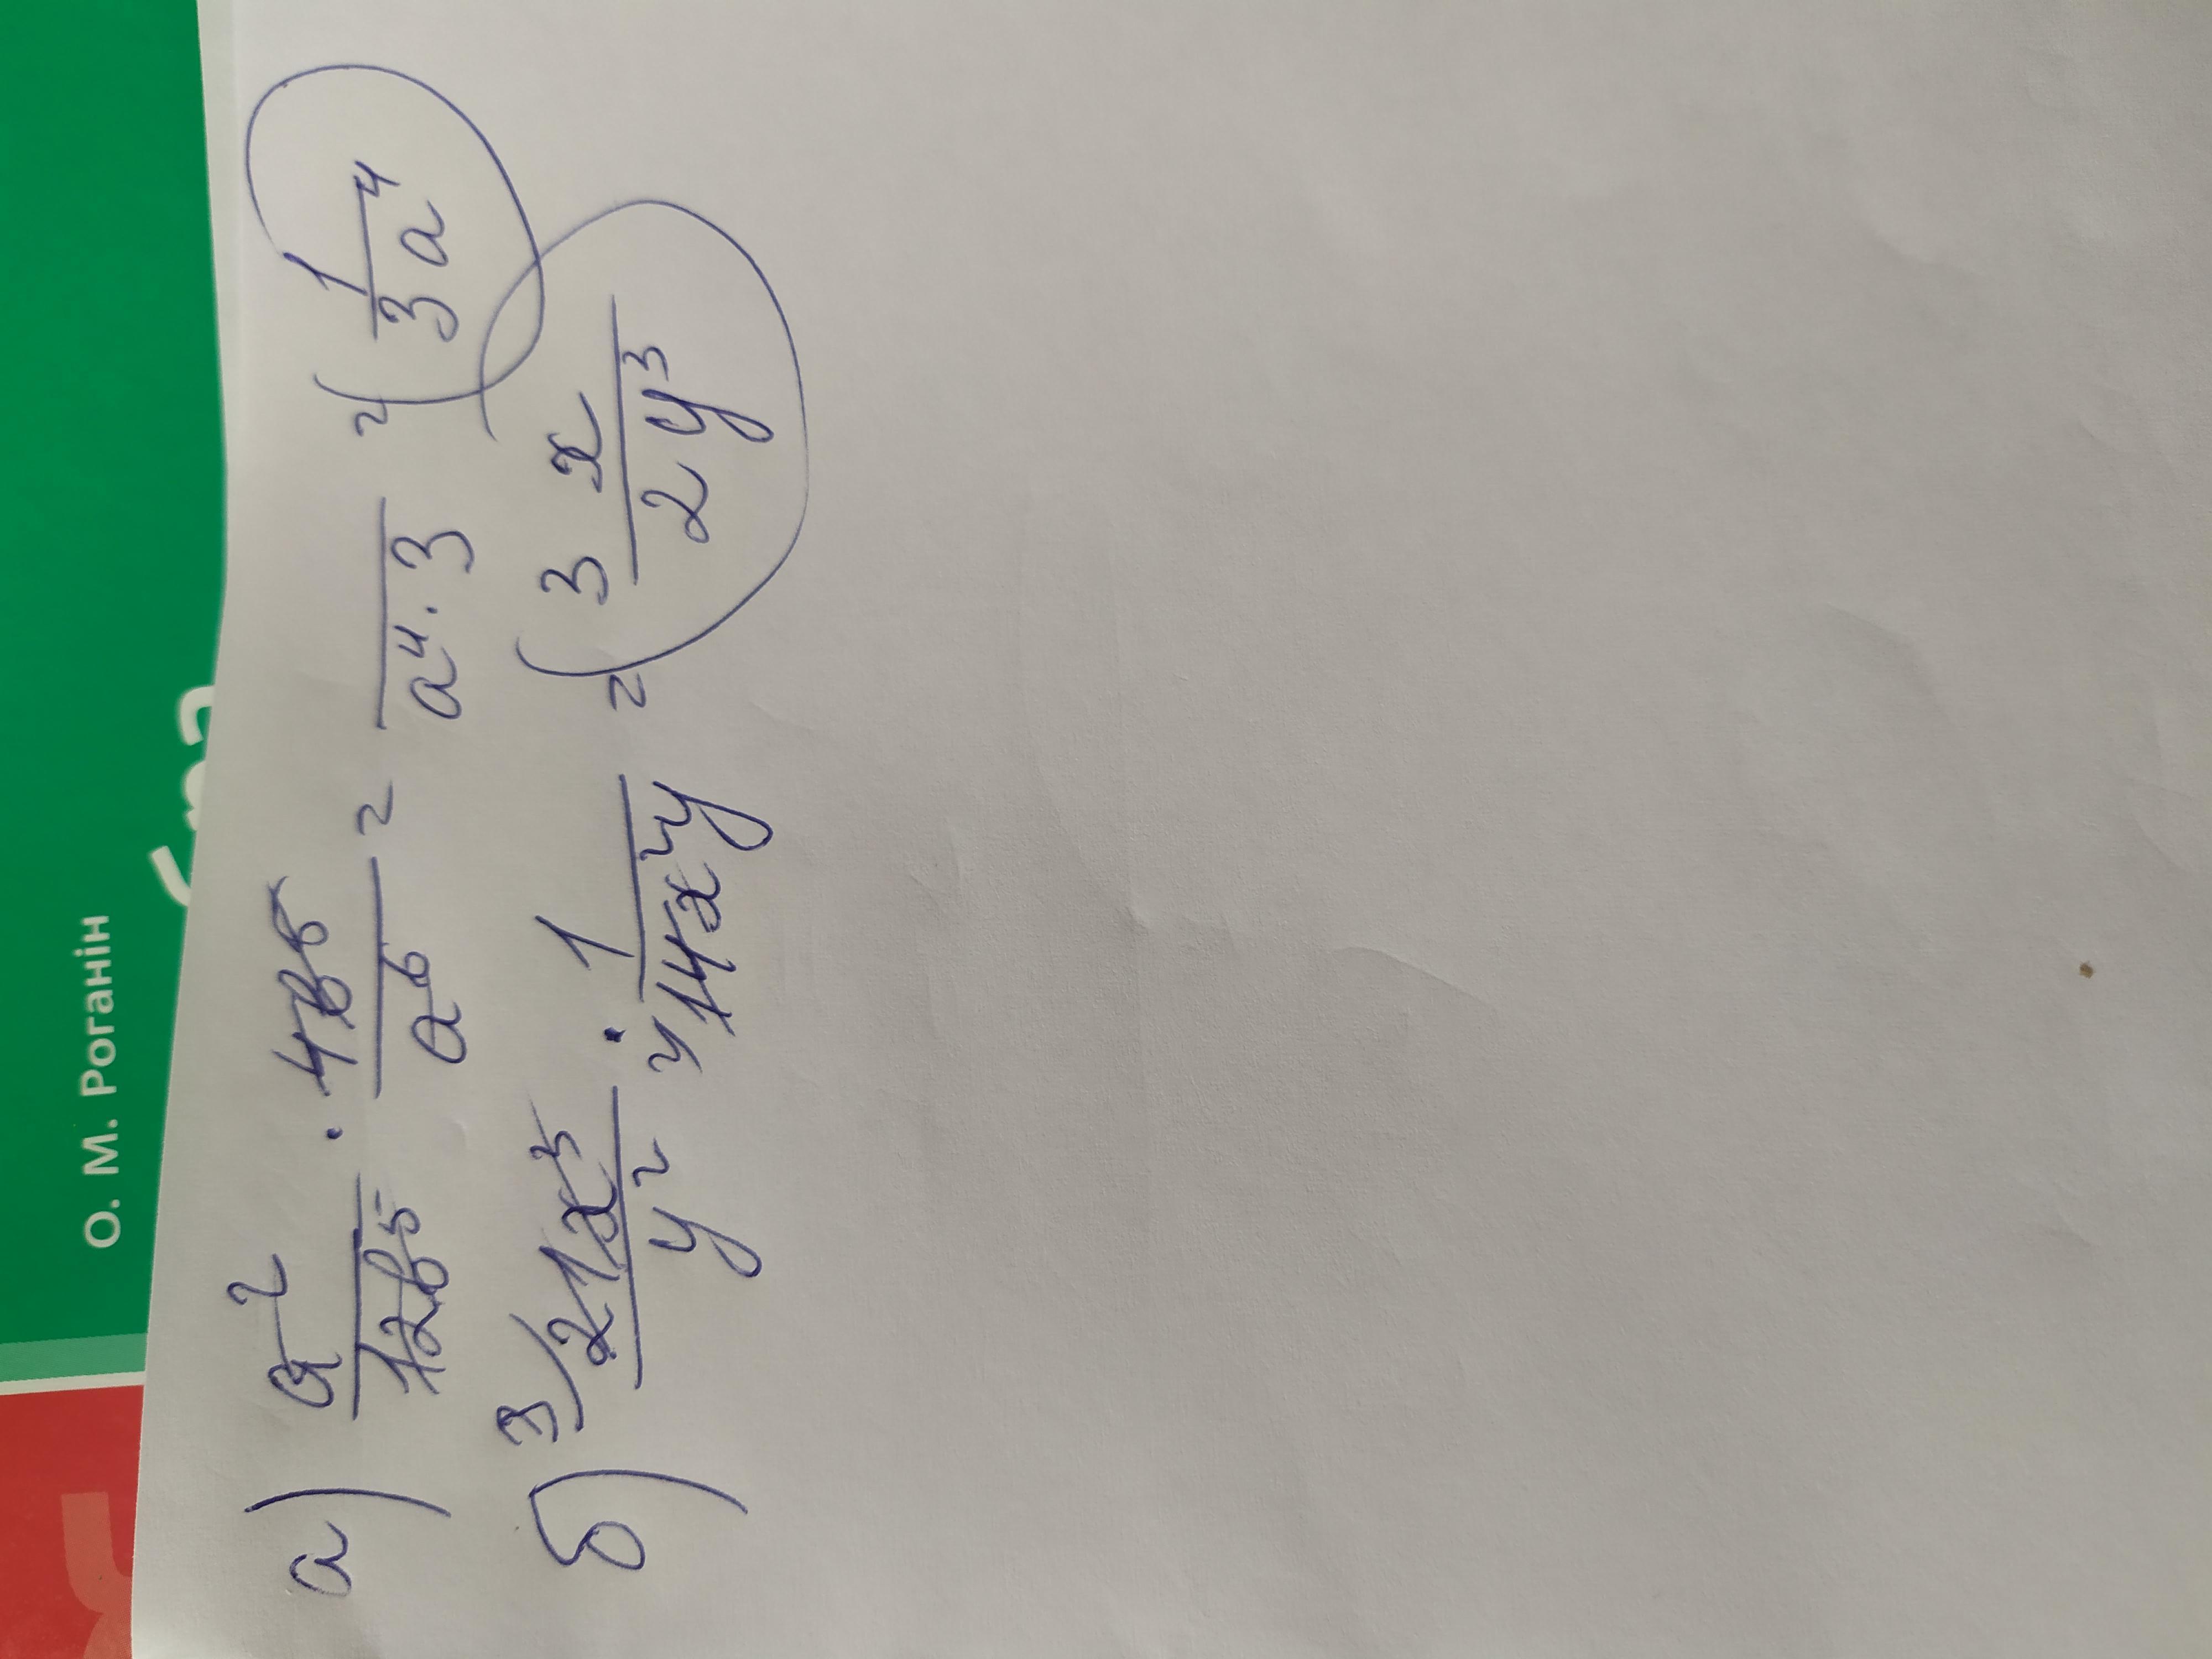 О. М. Роганін
а) a²/12b⁵ · 4b⁵/a⁶ = /a⁴·3 = 1/3a⁴
б) 3) 21x³/y² · 1/14x²y = 3x/2y³